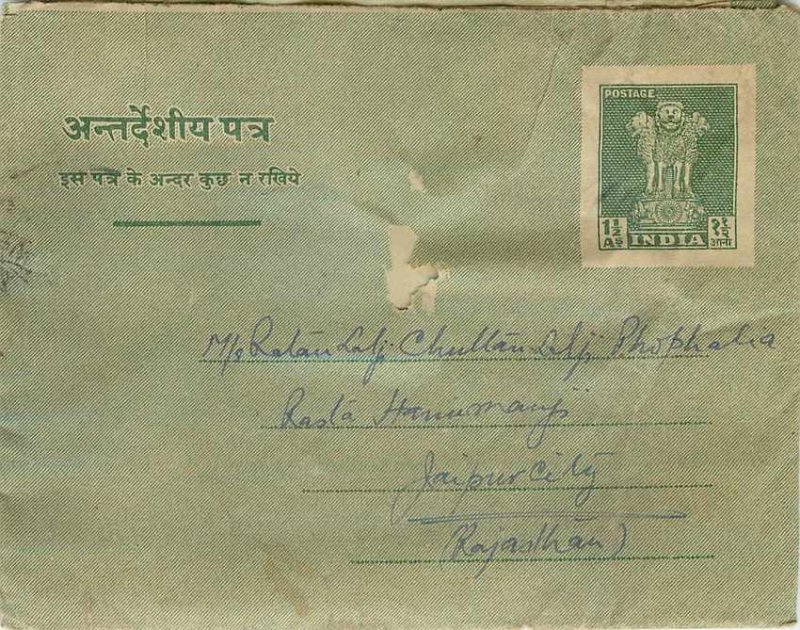 अन्तर्देशीय पत्र
इस पत्र के अन्दर कुछ न रखिये
POSTAGE
1½ As INDIA १½ आना
M/s Ratan Lalji Chuttan Lalji Phophalia
Rasta Hanumanji
Jaipur City
(Rajasthan)